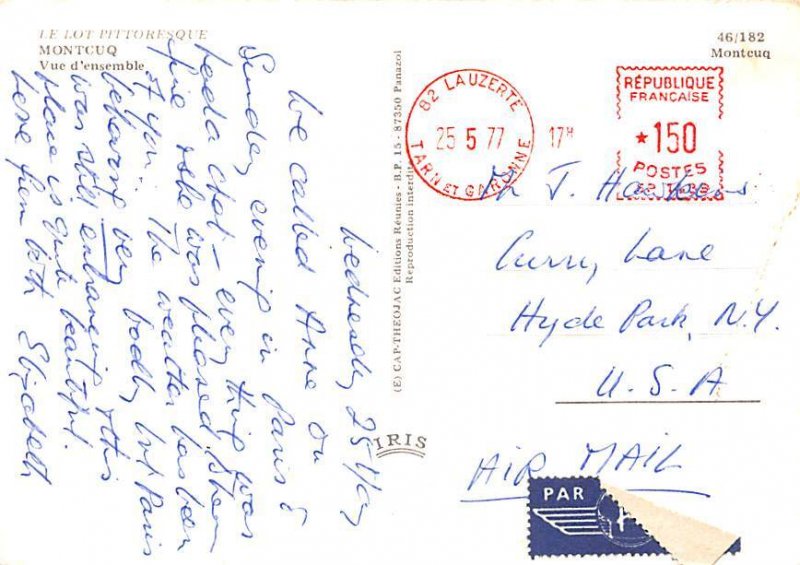 LE LOT PITTORESQUE
MONTCUQ
Vue d'ensemble
46/182
Montcuq
Wednesday 25 May
We called Anne on
Sunday evening in Paris &
had a chat — every thing was
fine she was pleased
of you. The weather has been
behaving very badly but Paris
was still entrancing. This
place is quite beautiful.
Love from both Elizabeth
(E) CAP-THEOJAC Editions Réunies - B.P. 15 - 87350 Panazol
Reproduction interdite
IRIS
82 LAUZERTE
25 5 77
TARN ET GARONNE
17H
RÉPUBLIQUE
FRANÇAISE
★150
POSTES
Mr J.
Curry Lane
Hyde Park, N.Y.
U.S.A
AIR MAIL
PAR